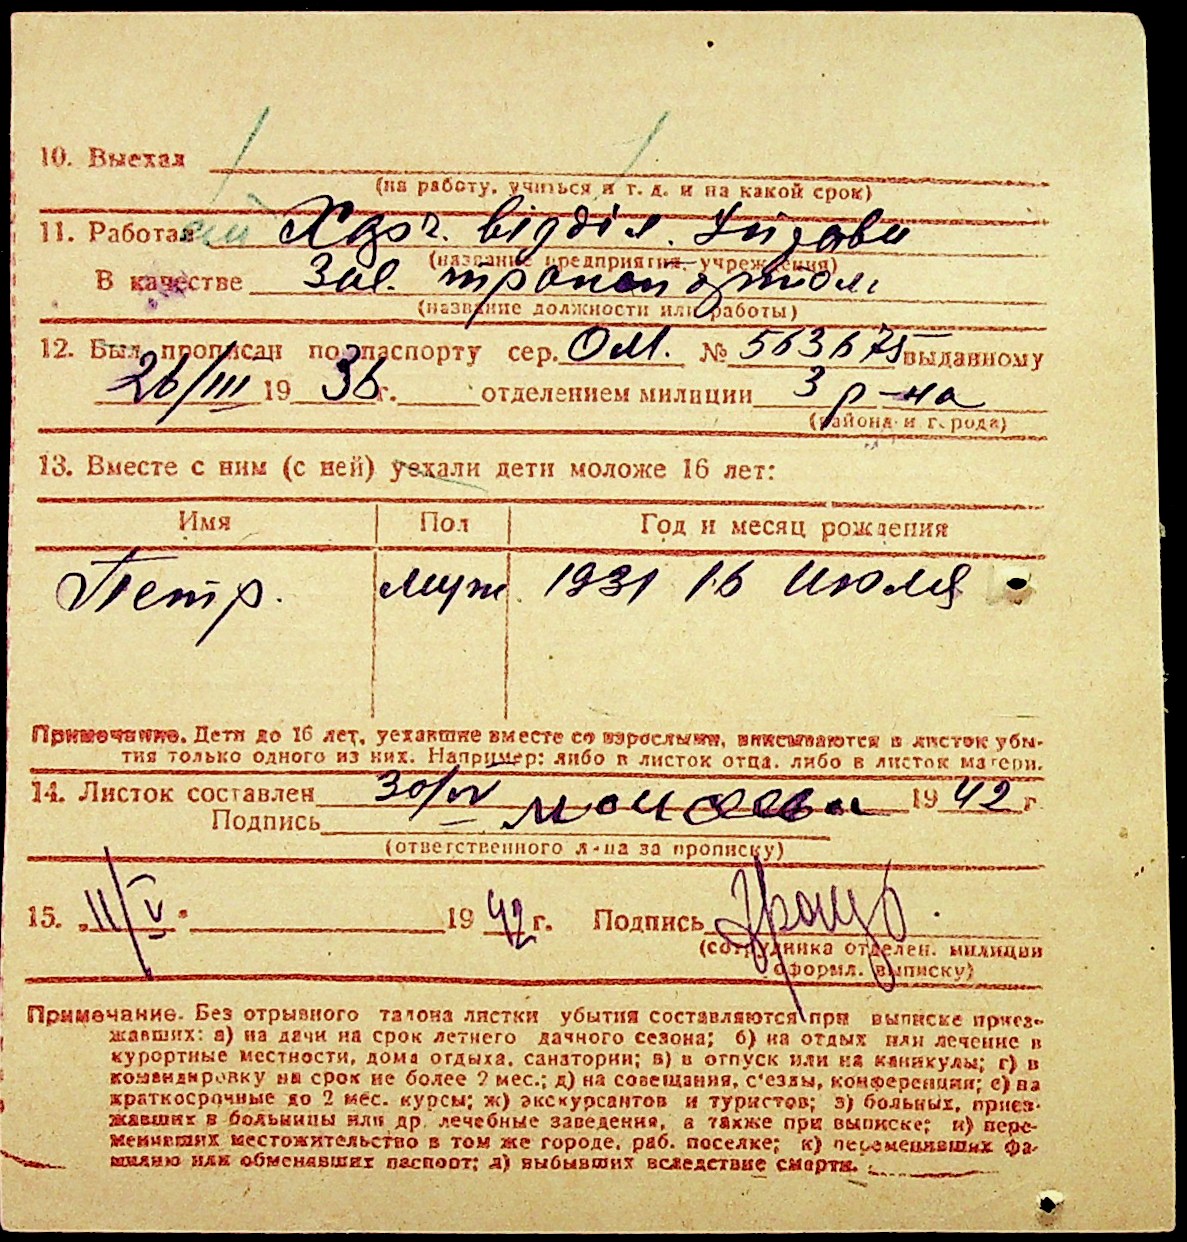 10. Выехал
(на работу, учиться и т. д. и на какой срок)
11. Работал Харч. відділ.
(название предприятия, учреждения)
В качестве Зав. транспортом
(название должности или работы)
12. Был прописан по паспорту сер. ОМ. № 563675 выданному
26/III 19 36 г. отделением милиции 3 р-на
(района и города)
13. Вместе с ним (с ней) уехали дети моложе 16 лет:
Имя Пол Год и месяц рождения
Петр. муж. 1931 16 Июля
Примечание. Дети до 16 лет, уехавшие вместе со взрослыми, вписываются в листок убы-
тия только одного из них. Например: либо в листок отца, либо в листок матери.
14. Листок составлен 30/IV 19 42 г
Подпись
(ответственного л-ца за прописку)
15. „11/V" 19 42 г. Подпись
(сотрудника отделен. милиции
оформл. выписку)
Примечание. Без отрывного талона листки убытия составляются при выписке приез-
жавших: а) на дачи на срок летнего дачного сезона; б) на отдых или лечение в
курортные местности, дома отдыха, санатории; в) в отпуск или на каникулы; г) в
командировку на срок не более 2 мес.; д) на совещания, с'езды, конференции; е) на
краткосрочные до 2 мес. курсы; ж) экскурсантов и туристов; з) больных, приез-
жавших в больницы или др. лечебные заведения, а также при выписке; и) пере-
менивших местожительство в том же городе, раб. поселке; к) переменивших фа-
милию или обменявших паспорт; л) выбывших вследствие смерти.